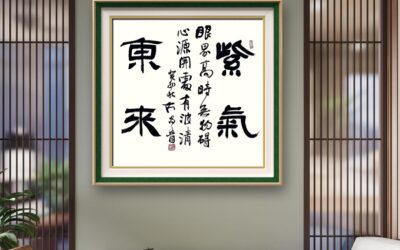 紫氣
眼界高時無物碍
心源開處有波清
癸卯秋
東來